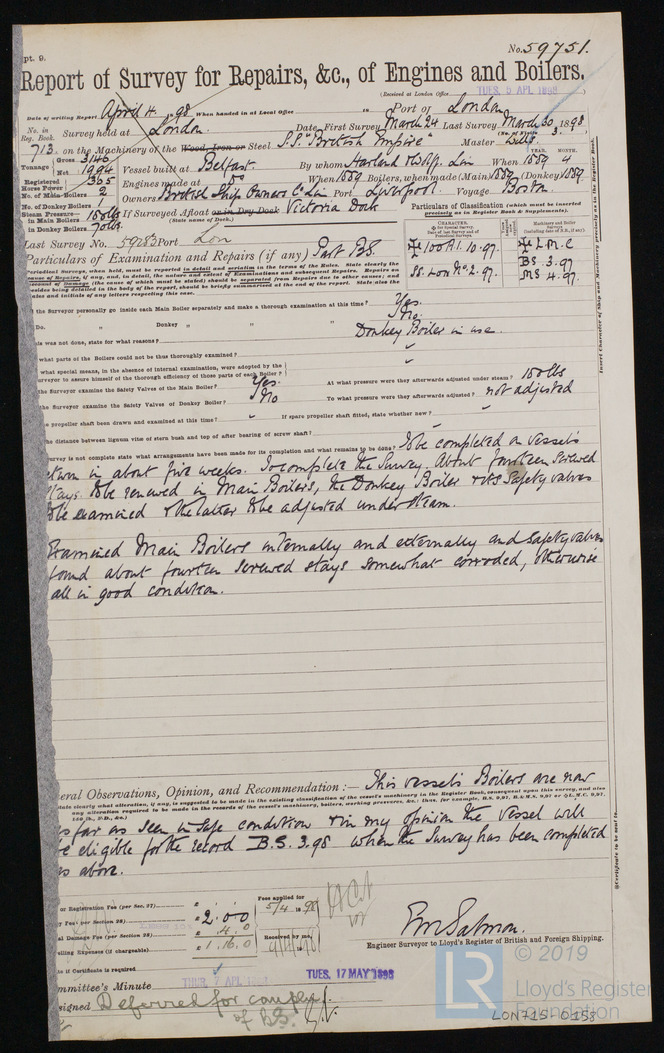 pt. 9.
No. 59751.
Report of Survey for Repairs, &c., of Engines and Boilers.
(Received at London Office TUES. 5 APL 1898
Date of writing Report April 4 1898 When handed in at Local Office in Port of London
No. in Reg. Book. Survey held at London. Date, First Survey March 24 Last Survey March 30 1898
(No. of Visits 3.)
713. on the Machinery of the Wood, Iron or Steel S.S. "British Empire" Master
Tonnage Gross 3146 Net 1994 Vessel built at Belfast. By whom Harland & Wolff. Lim When 1889 YEAR. MONTH. 4
Registered Horse Power 365 Engines made at Do When 1889 Boilers, when made (Main) 1889 (Donkey) 1889.
No. of Main Boilers 2 Owners British Ship Owners Co Lim Port Liverpool. Voyage Boston.
No. of Donkey Boilers 1
Steam Pressure— in Main Boilers 150 lbs If Surveyed Afloat or in Dry Dock Victoria Dock
in Donkey Boilers 70 lbs. (State name of Dock.)
Particulars of Classification (which must be inserted precisely as in Register Book & Supplements).
Last Survey No. 59283 Port Lon
✠ 100 A1. 10.97. ✠ L.M.C
SS. Lon No. 2-97. BS. 3.97
MS 4.97.
Particulars of Examination and Repairs (if any) Part B.S.
the Surveyor personally go inside each Main Boiler separately and make a thorough examination at this time? Yes.
Do. " Donkey " " " " No.
this was not done, state for what reasons? Donkey Boiler in use.
what parts of the Boilers could not be thus thoroughly examined?
what special means, in the absence of internal examination, were adopted by the
surveyor to assure himself of the thorough efficiency of those parts of each Boiler?
the Surveyor examine the Safety Valves of the Main Boiler? Yes. At what pressure were they afterwards adjusted under steam? 150 lbs
the Surveyor examine the Safety Valves of Donkey Boiler? No To what pressure were they afterwards adjusted? not adjusted
propeller shaft been drawn and examined at this time? If spare propeller shaft fitted, state whether new?
the distance between lignum vitæ of stern bush and top of after bearing of screw shaft?
survey is not complete state what arrangements have been made for its completion and what remains to be done: To be completed on Vessel's
return in about five weeks. To complete the Survey, About fourteen Screwed
Stays to be renewed in Main Boilers, the Donkey Boiler & its Safety valves
to be examined & the latter to be adjusted under steam.
Examined Main Boilers internally and externally and Safety valves
found about fourteen screwed stays somewhat corroded, otherwise
all in good condition.
eral Observations, Opinion, and Recommendation:— This vessel's Boilers are now
as far as seen in safe condition & in my opinion the Vessel will
be eligible for the record B.S. 3.98 when the Survey has been completed
as above.
or Registration Fee (per Sec. 27) £ : :
y Fee (per Section 28) £ 2.0.0
al Damage Fee (per Section 28) £ 4.0
elling Expenses (if chargeable) £ 1.16.0
Fees applied for 5/4 1898
Received by me,
Engineer Surveyor to Lloyd's Register of British and Foreign Shipping.
te if Certificate is required
mmittee's Minute THUR. 7 APL 1898 TUES. 17 MAY 1898
signed Deferred for complen.
of BS.
Insert Character of Ship and Machinery precisely as in the Register Book.
© 2019
LR Lloyd's Register
Foundation
LON715-0158